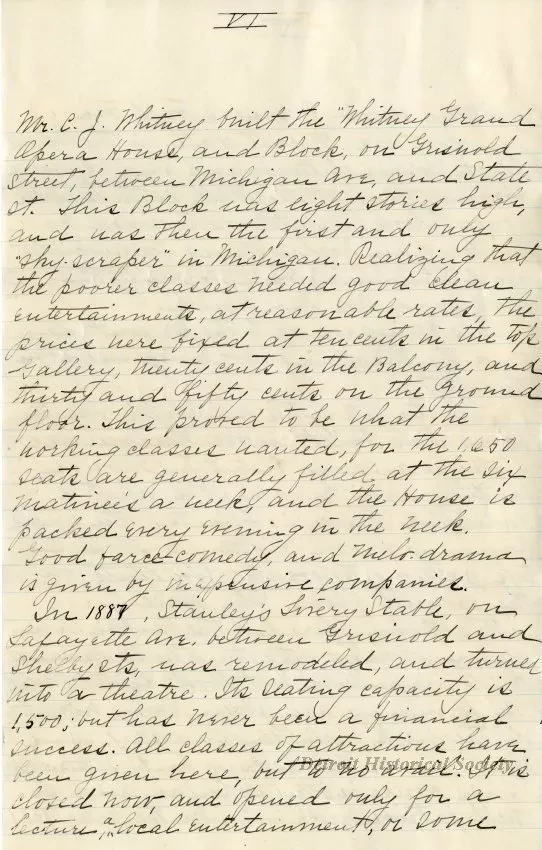 VI
Mr. C. J. Whitney built the "Whitney Grand
Opera House, and Block, on Griswold
Street, between Michigan Ave, and State
st. This Block was eight stories high,
and was then the first and only
"sky-scraper" in Michigan. Realizing that
the poorer classes needed good clean
entertainments, at reasonable rates, the
prices were fixed at ten cents in the top
Gallery, twenty cents in the Balcony, and
thirty and fifty cents on the ground
floor. This proved to be what the
working classes wanted, for the 1,650
seats are generally filled at the six
matinee's a week, and the House is
packed every evening in the week.
Good farce-comedy, and melo-drama
is given by inexpensive companies.
In 1887, Stanley's Livery Stable, on
Lafayette Ave. between Griswold and
Shelby sts, was remodeled, and turned
into a theatre. Its seating capacity is
1,500; but has never been a financial
success. All classes of attractions have
been given here, but to no avail. It is
closed now, and opened only for a
lecture, a local entertainment, or some
Detroit Historical Society